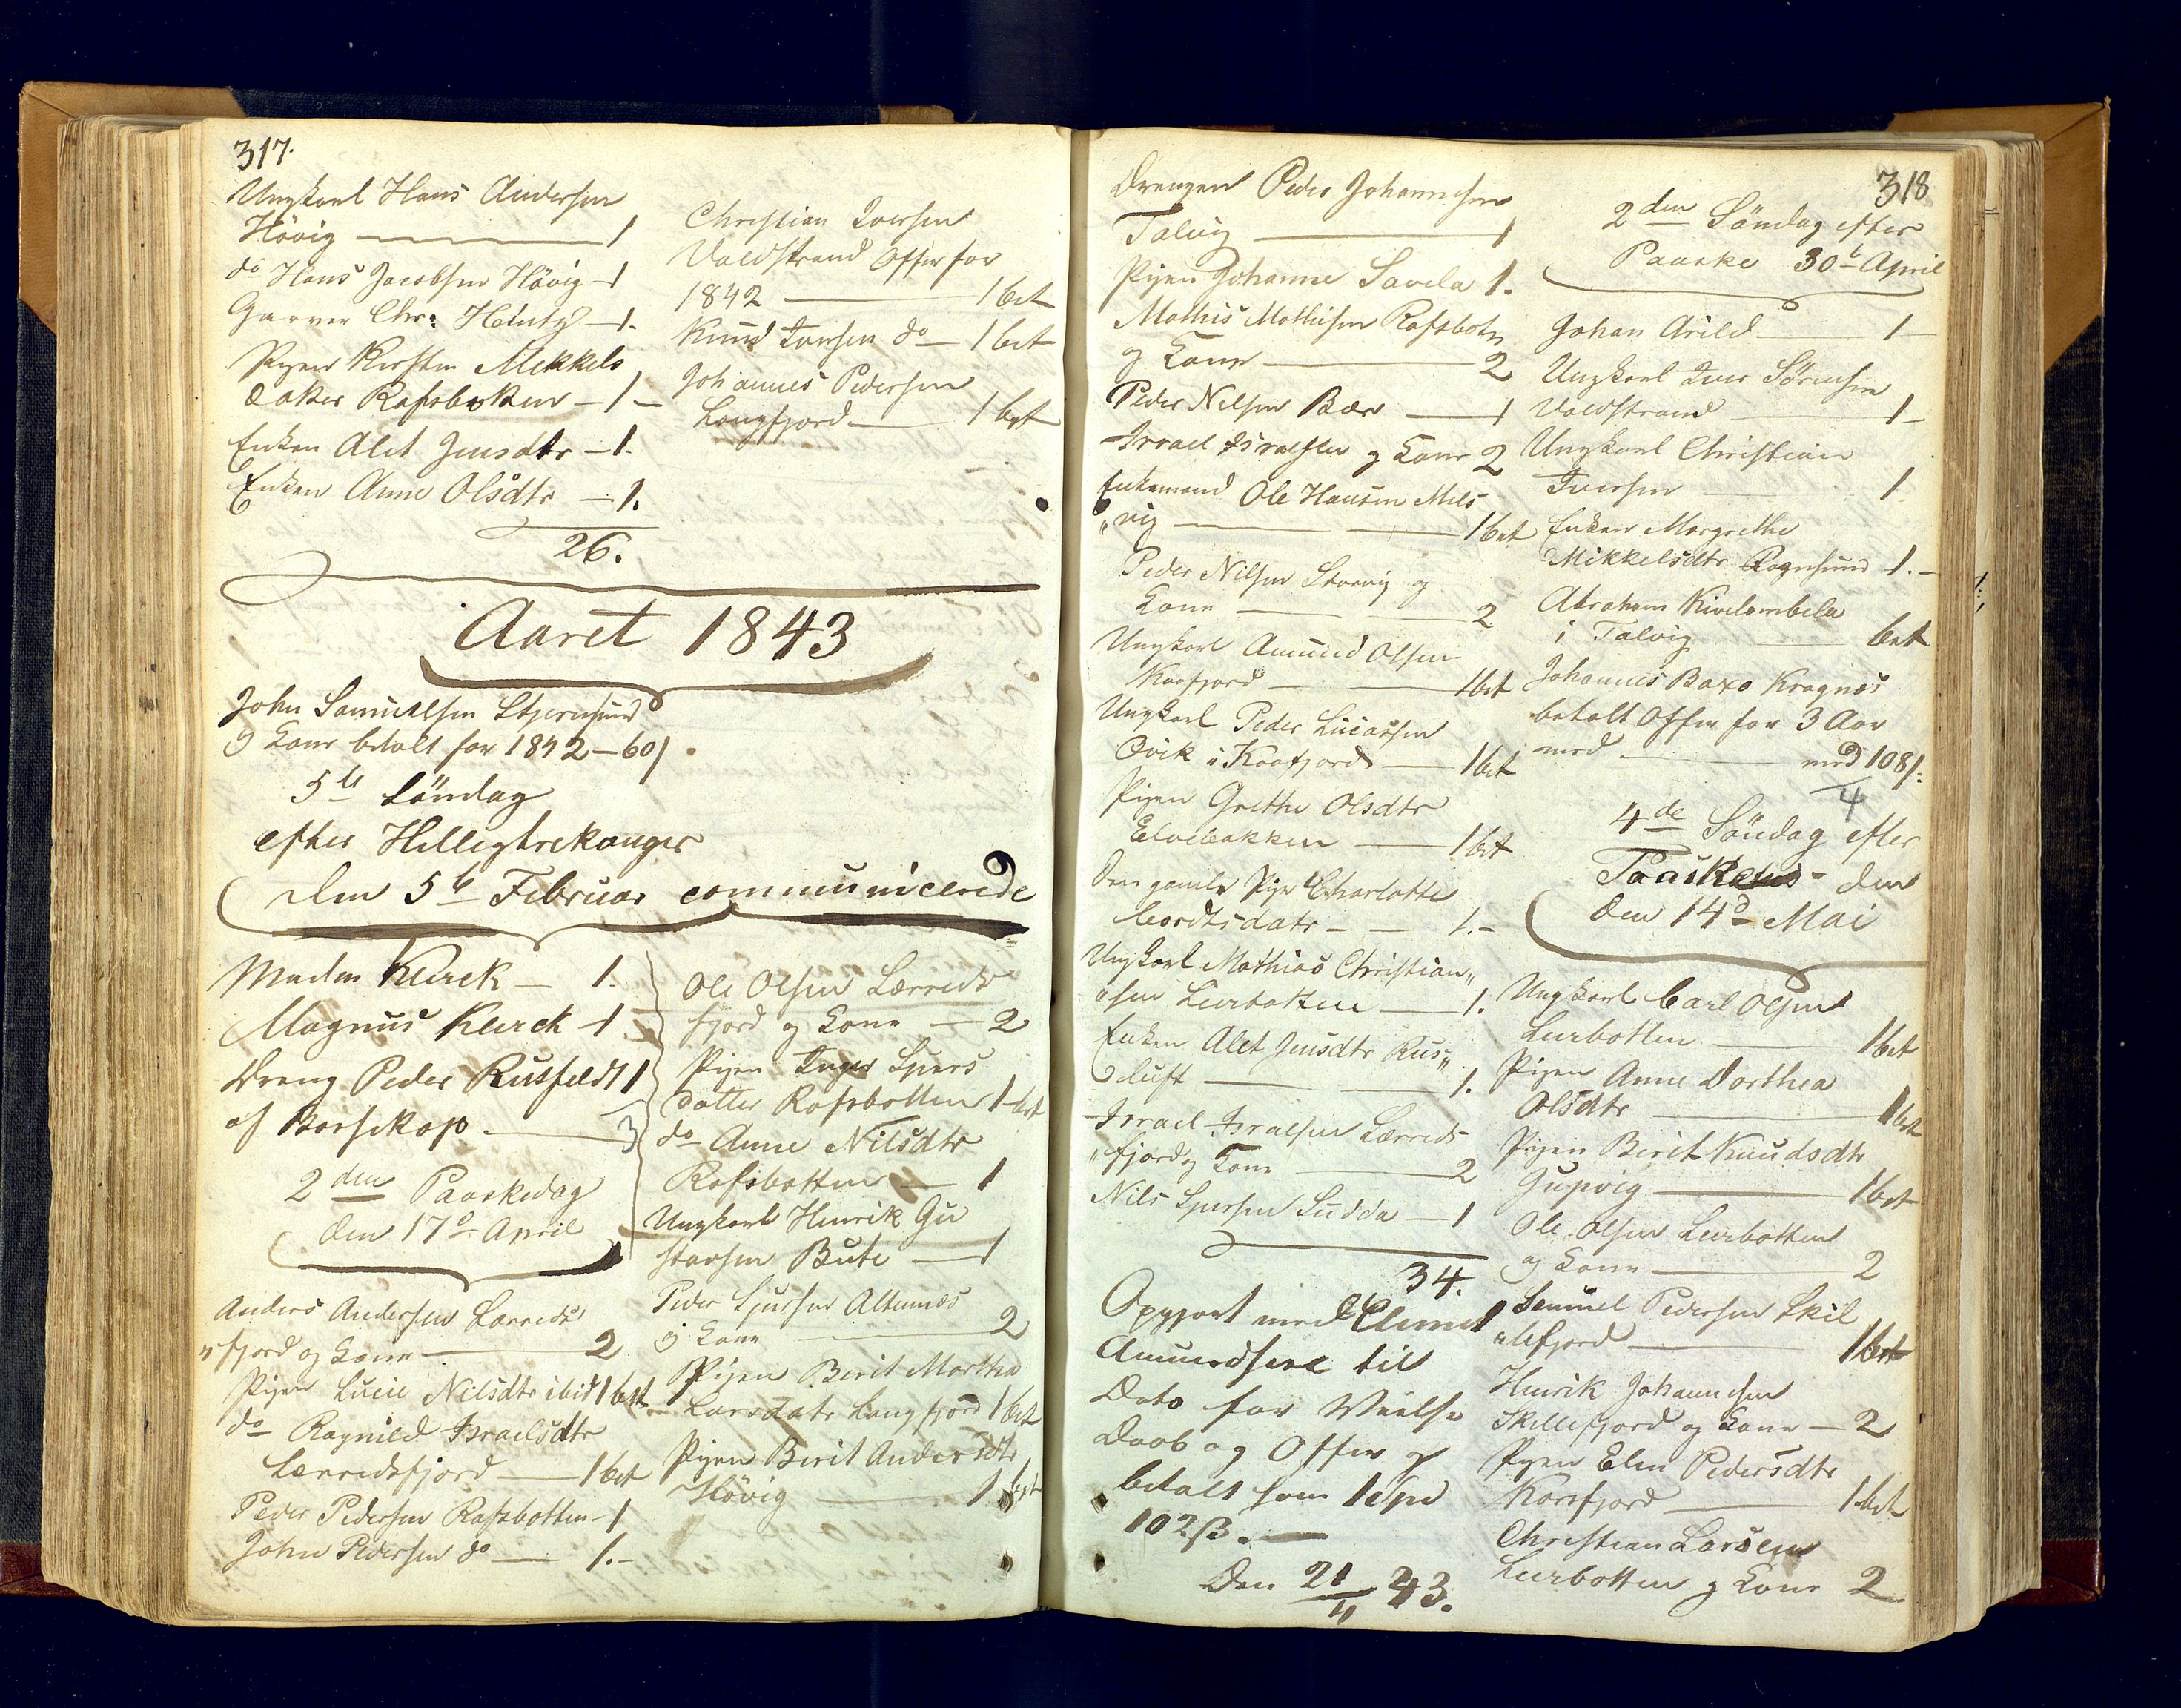 317.
Ungkarl Hans Andersen
Hövig — 1
do Hans Jacobsen Hövig — 1
Garver Chr: Heintz — 1.
Pigen Kirsten Mikkels
datter Rafsbotten — 1 —
Enken Alet Jensdtr — 1.
Enken Anne Olsdtr — 1.
26.
Christian Iversen
Valdstrand Offer for
1842 — 1 bet
Knud Iversen do — 1 bet
Johannes Pedersen
Langfjord — 1 bet
Aaret 1843
John Samuelsen Stjernsund
og Kone betalt for 1842 — 60 ſ.
5te Söndag
efter Helligtrekonger
den 5te Februar communicerede
Madm Klerck — 1.
Magnus Klerck — 1
Dreng Peder Rusfeldt 1
af Bossekop. — 3
2den Paaskedag
den 17de April
Anders Andersen Lerreds
"fjord og Kone — 2
Pigen Lucie Nilsdtr ibid 1 bet
do Ragnild Israelsdtr
Lerredsfjord — 1 bet
Peder Pedersen Rafsbotten — 1
John Pedersen do — 1. —
Ole Olsen Lerreds
fjord og Kone — 2
Pigen Inger Sjurs
datter Rafsbotten 1 bet
do Anne Nilsdtr
Rafsbotten — 1
Ungkarl Henrik Gu
stavsen Bute — 1
Peder Sjursen Altenæs
og Kone — 2
Pigen Berit Martha
Larsdatr Langfjord 1 bet
Pigen Berit Andersdtr
Hövig — 1 bet
318
Drengen Peder Johannesen
Talvig — 1
Pigen Johanne Savela 1.
Mathis Mathisen Rafsbotn
og Kone — 2
Peder Nilsen Bær — 1
Israel Israelsen og Kone 2
Enkemand Ole Hansen Mels
"vig — 1 bet
Peder Nilsen Storvig og
Kone — 2
Ungkarl Amund Olsen
Kaafjord — 1 bet
Ungkarl Peder Lucassen
Qvik i Kaafjord — 1 bet
Pigen Grethe Olsdtr
Elvebakken — 1 bet
Den gamle Pige Charlotte
Cordtsdatr — 1. —
Ungkarl Mathias Christian"
"sen Leerbotten — 1.
Enken Alet Jensdtr Rus"
luft — 1.
Israel Israelsen Lerreds
"fjord og Kone — 2
Nils Sjursen Sudda — 1
34.
Opgjort med Clemet
Amundsen til
Dato for Vielse
Daab og Offer og
betalt som 1 Spd
102 ß. —
Den 21/11 43.
2den Söndag efter
Paaske 30te April
Johan Arild — 1
Ungkarl Iver Sörensen
Valdstrand — 1 —
Ungkarl Christian
Iversen — 1.
Enken Margrethe
Mikkelsdtr Rognsund 1. —
Abraham Kivelombela
i Talvig — bet
Johannes Baxo Kragnæs
betalt Offer for 3 Aar
med — med 108 ſ:
4
4de Söndag efter
Paaske den
den 14de Mai
Ungkarl Carl Olsen
Leerbotten — 1 bet
Pigen Anne Dorthea
Olsdtr — 1 bet
Pigen Berit Knudsdtr
Jupvig — 1 bet
Ole Olsen Leerbotten
og Kone — 2
Samuel Pedersen Skil
"lefjord — 1 bet
Henrik Johannesen
Skillefjord og Kone — 2
Pigen Elen Pedersdtr
Korsfjord — 1 bet
Christian Larsen
Leerbotten og Kone 2